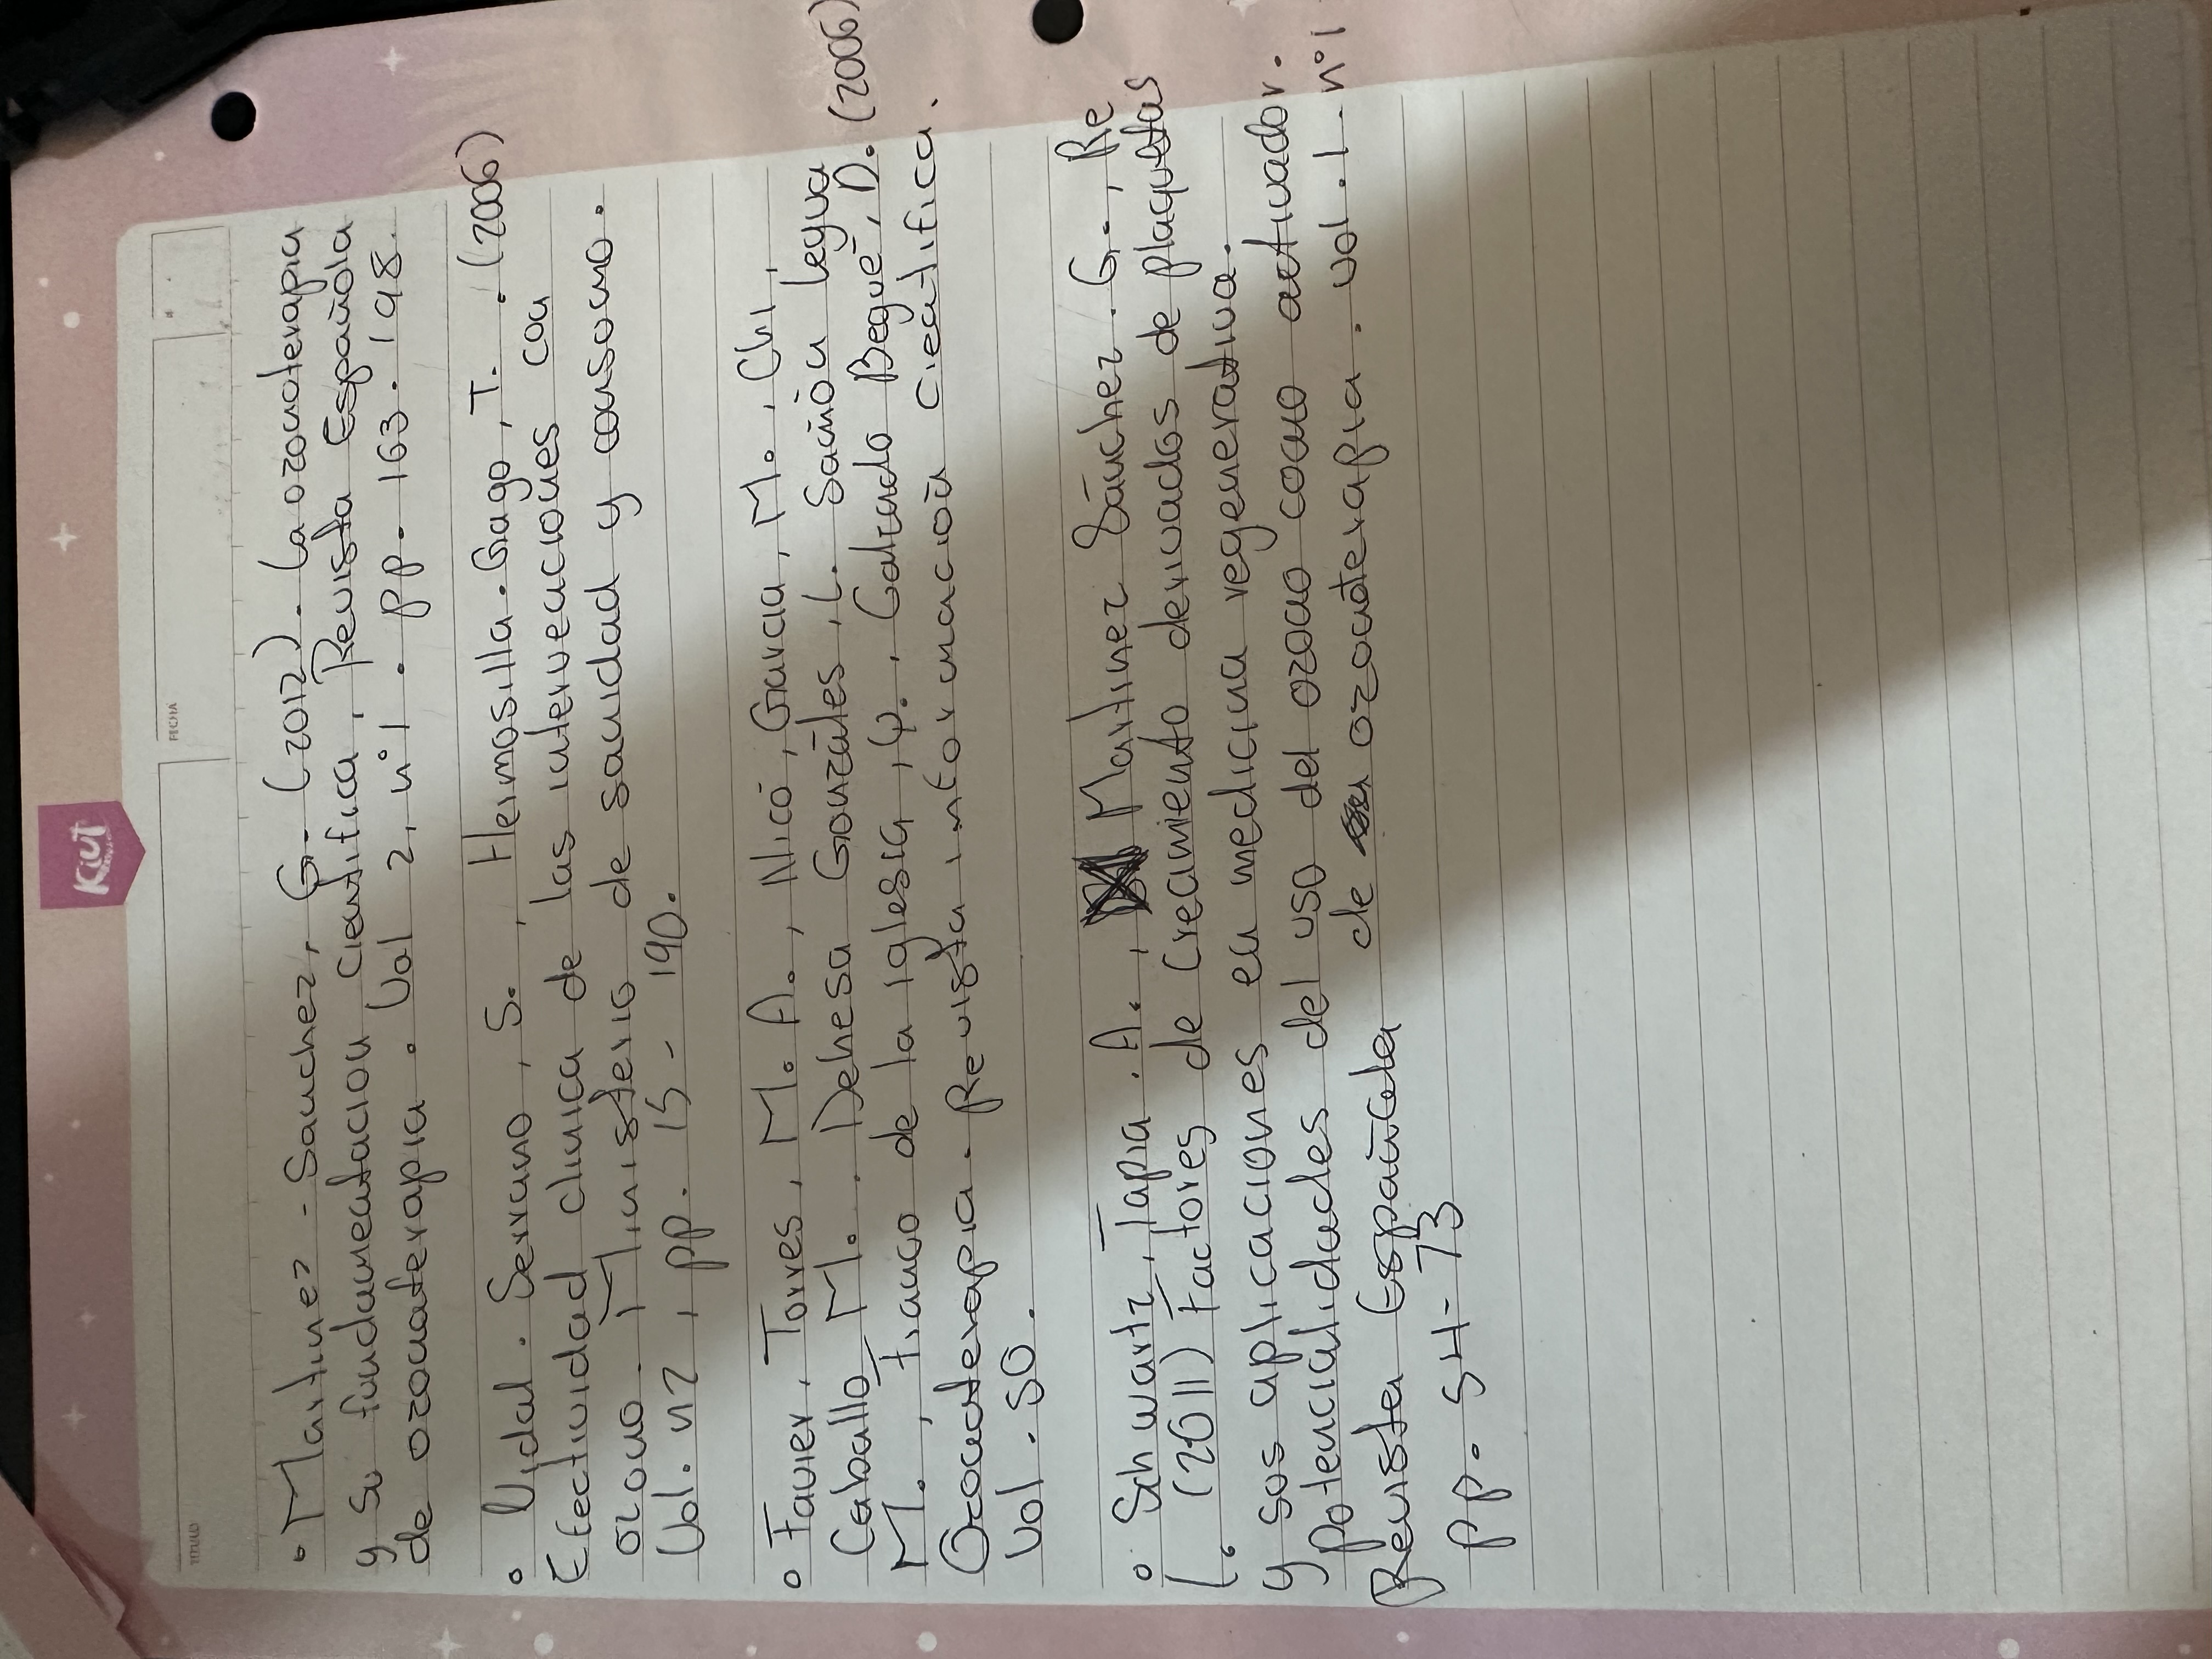 TITULO
FECHA
Kiut
• Martinez - Sanchez, G. (2012). La ozonoterapia
y su fundamentacion cientifica, Revista Española
de ozonoterapia. Vol 2, nº1. pp. 163. 198.
• Vidal. Serrano, S., Hermosilla. Gago, T. (2006)
Efectividad clinica de las intervenciones con
ozono. Ministerio de sanidad y consumo.
Vol. n2, pp. 15 - 190.
• Favier. Torres, M. A., Nicó, García, M., Chi,
Caballo M.. Dehesa Gonzáles, L. Sañón Legua
M., Franco de la iglesia, Y., Galindo Begué, D. (2006)
Ozonoterapia. Revista información cientifica.
Vol. 50.
• Schwartz, Tapia. A., Martinez Sánchez. G., Re
L. (2011) Factores de Creamiento derivados de plaquetas
y sus aplicaciones en medicina regenerativa.
potencialidades del uso del ozono como activador.
Revista Española de ozonoterapia. vol. 1. nº1
pp. 54-73